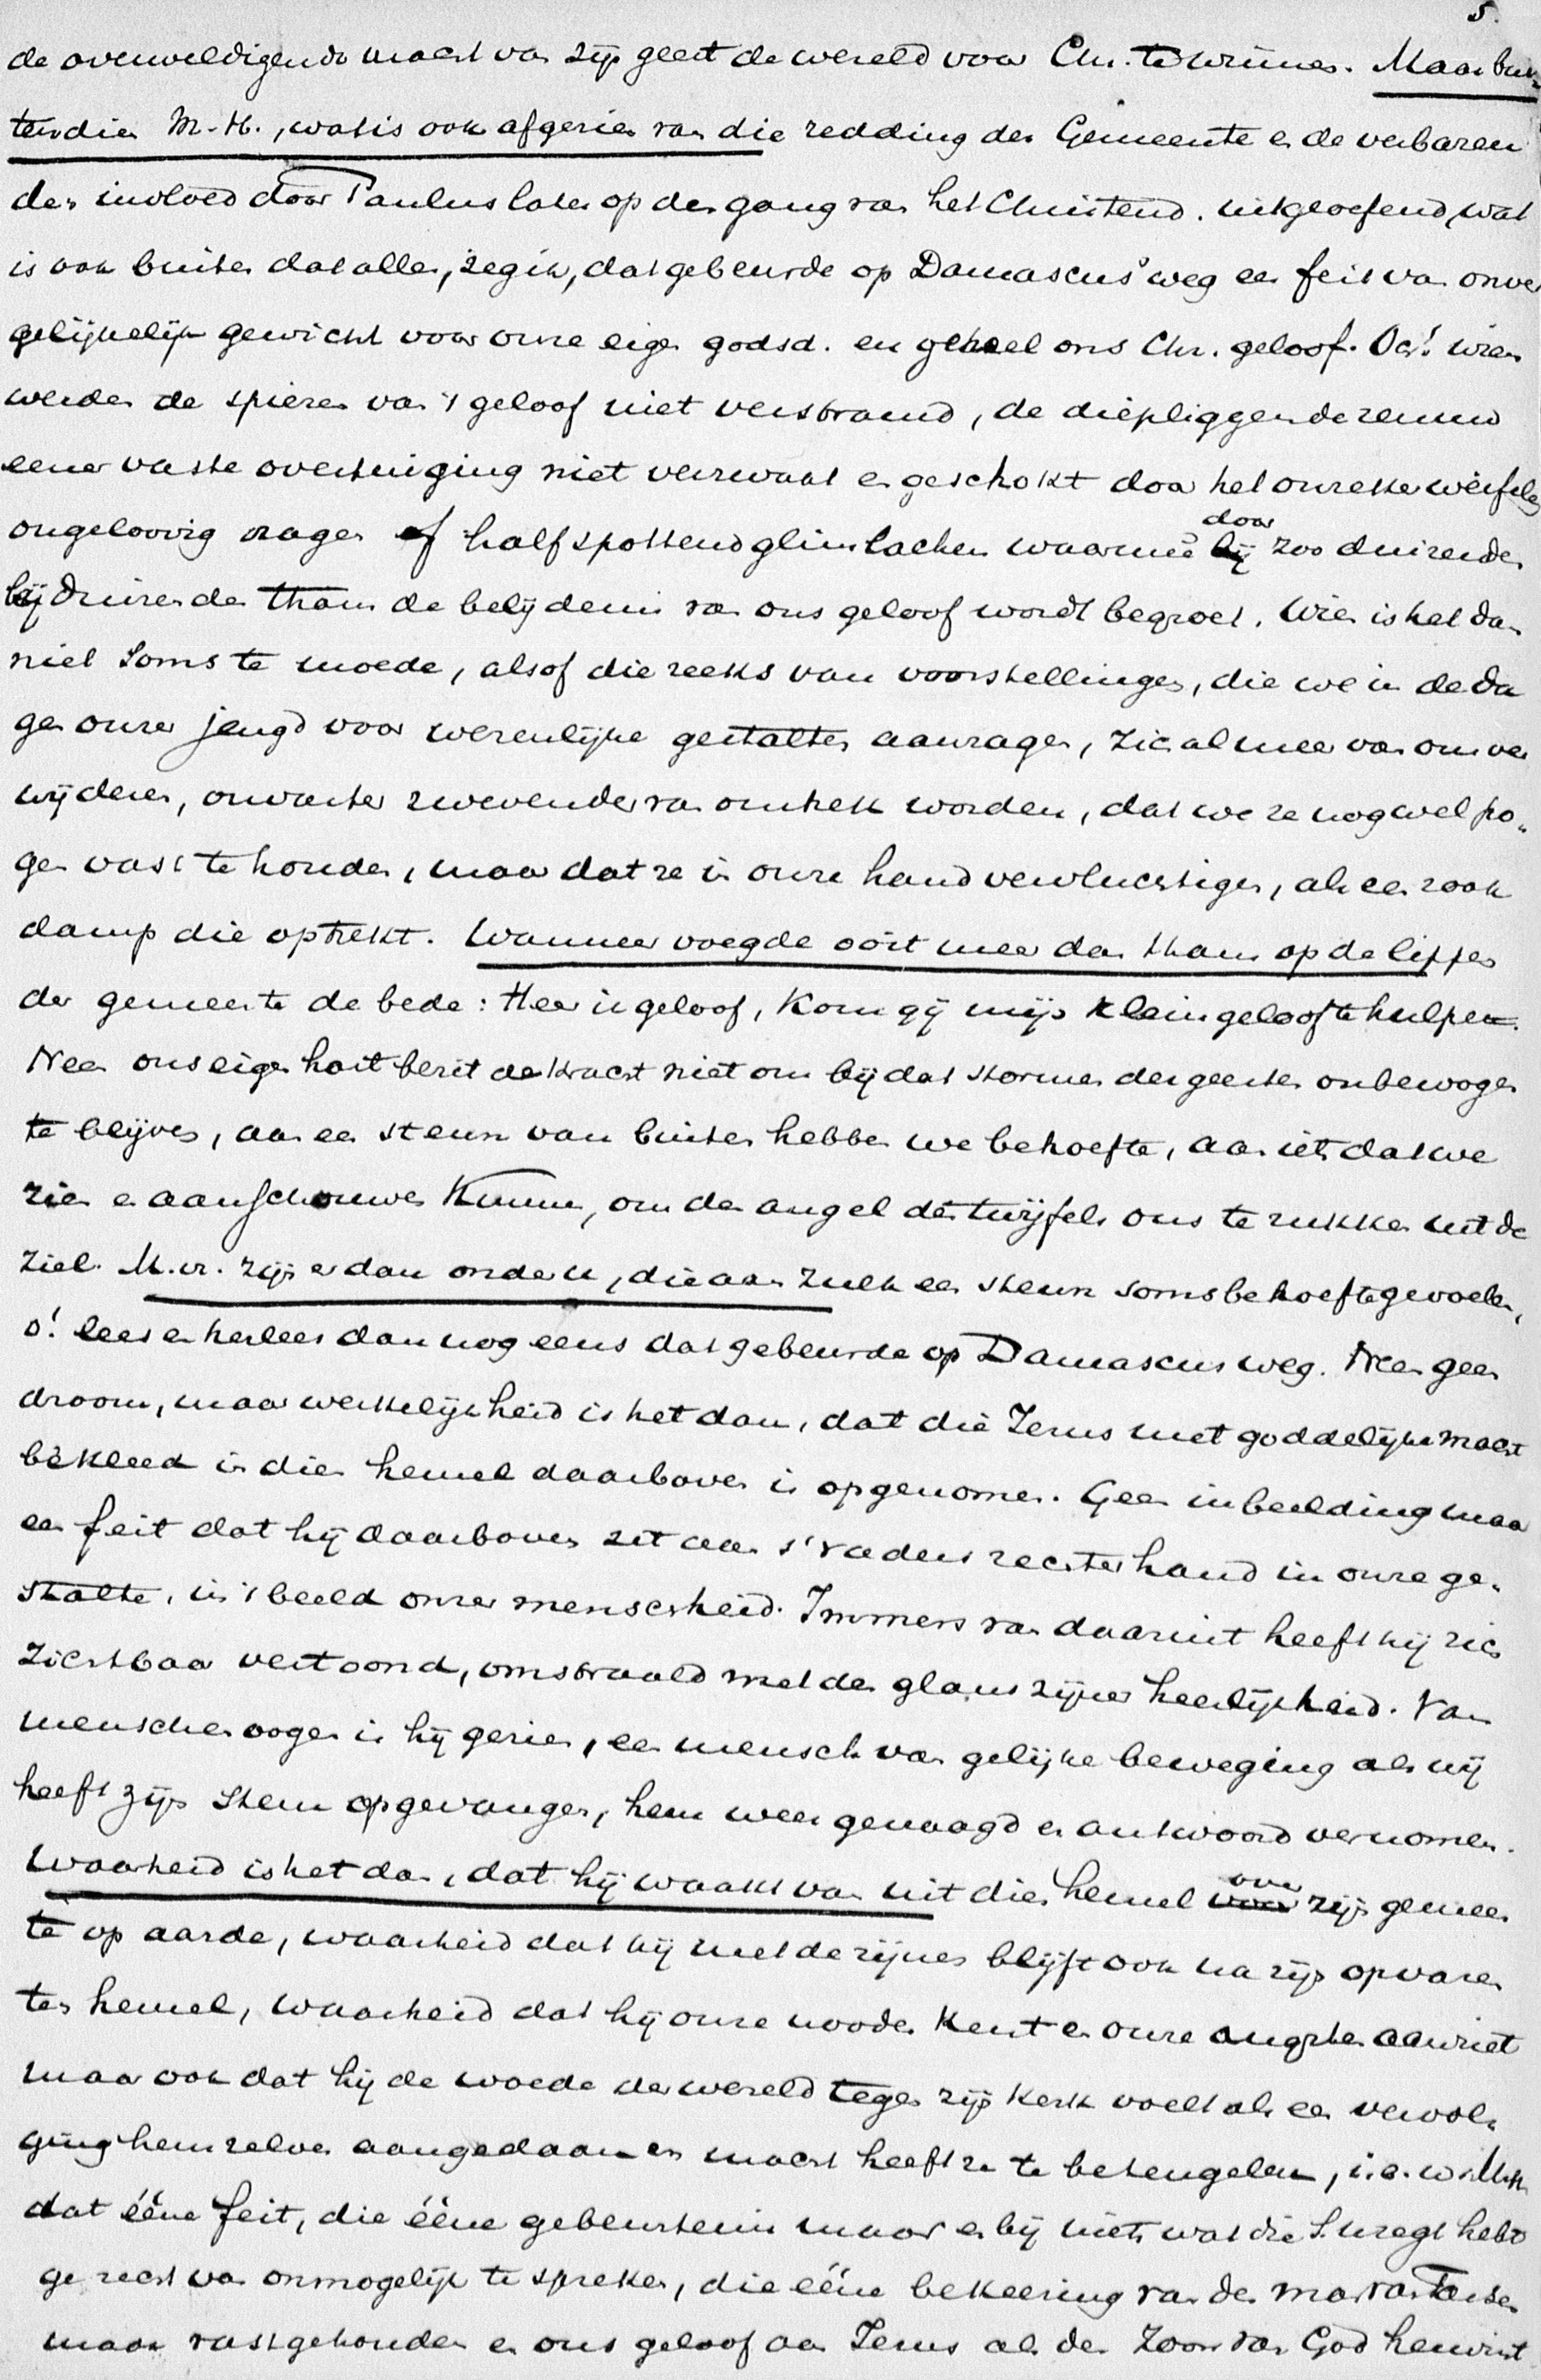 5.
de overweldigende macht van zijn geest de wereld voor Chr. te winnen. Maar bui-
ten dien M.H., wat is ook afgezien van die redding der Gemeente en de verbazen
den invloed door Paulus later op den gang van het Christend. uitgeoefend, wat
is ook buiten dat alles, zeg ik, dat gebeurde op Damascus' weg een feit van onver
gelijkelijk gewicht voor onze eigen godsd. en geheel ons Chr. geloof. Och! wien
werden de spieren van 't geloof niet verstramd, de diepliggende zenuw
eener vaste overtuiging niet verzwakt en geschokt door het onzeker weifelen
ongeloovig vragen of half spottend glimlachen waarmeê door zoo duizenden
bij duizenden thans de belijdenis van ons geloof wordt begroet. Wien is het dan
niet soms te moede, alsof die reeks van voorstellingen, die we in de da
gen onzer jeugd voor wezenlijke gestalten aanzagen, zich al meer van ons ver
wijderen, onvaster zwevender van omtrek worden, dat we ze nog wel po-
gen vast te houden, maar dat ze in onze hand vervluchtigen, als een rook
damp die optrekt. Wanneer voegde ooit meer dan thans op de lippen
der gemeente de bede: Heer ik geloof, kom gij mijn kleingeloof te hulpe.
Neen ons eigen hart bezit de kracht niet om bij dat stormen der geesten onbewogen
te blijven, aan een steun van buiten hebben we behoefte, aan iets dat we
zien en aanschouwen kunnen, om den angel des twijfels ons te rukken uit de
ziel. M.vr. zijn er dan onder u, die aan zulk een steun soms behoefte gevoelen,
o! lees en herlees dan nog eens dat gebeurde op Damascus weg. Neen geen
droom, maar werkelijkheid is het dan, dat die Jezus met goddelijke macht
bekleed in dien hemel daarboven is opgenomen. Geen inbeelding maar
een feit dat hij daarboven zit aan s' vaders rechterhand in onze ge-
stalte, in 't beeld onzer menschheid. Immers van daaruit heeft hij zich
zichtbaar vertoond, omstraald met den glans zijner heerlijkheid. Van
menschen oogen is hij gezien, een mensch van gelijke beweging als wij
heeft zijn stem opgevangen, hem weer gevraagd en antwoord vernomen.
Waarheid is het dan, dat hij waakt van uit dien hemel over zijn gemeen
te op aarde, waarheid dat hij met de zijnen blijft ook na zijn opvaren
ten hemel, waarheid dat hij onze nooden kent en onze angsten aanziet
maar ook dat hij de woede der wereld tegen zijn kerk voelt als een vervol-
ging hem zelven aangedaan en macht heeft ze te beteugelen, i.e.w.
dat ééne feit, die ééne gebeurtenis maar er bij niets wat die hebt
ge recht van onmogelijk te spreken, die ééne bekeering van den man van Tarsen
maar vastgehouden en ons geloof aan Jezus als den Zoon van God herwint